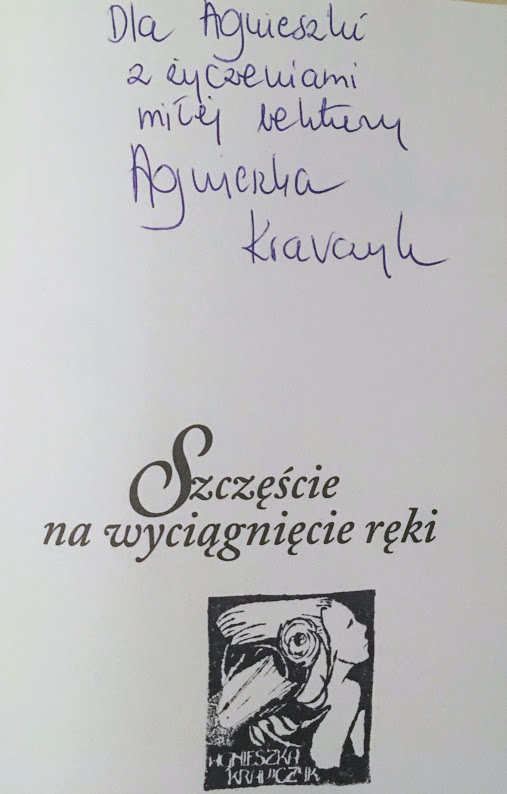 Dla Agnieszki
z życzeniami
miłej lektury
Agnieszka
Krawczyk
Szczęście
na wyciągnięcie ręki
AGNIESZKA
KRAWCZYK